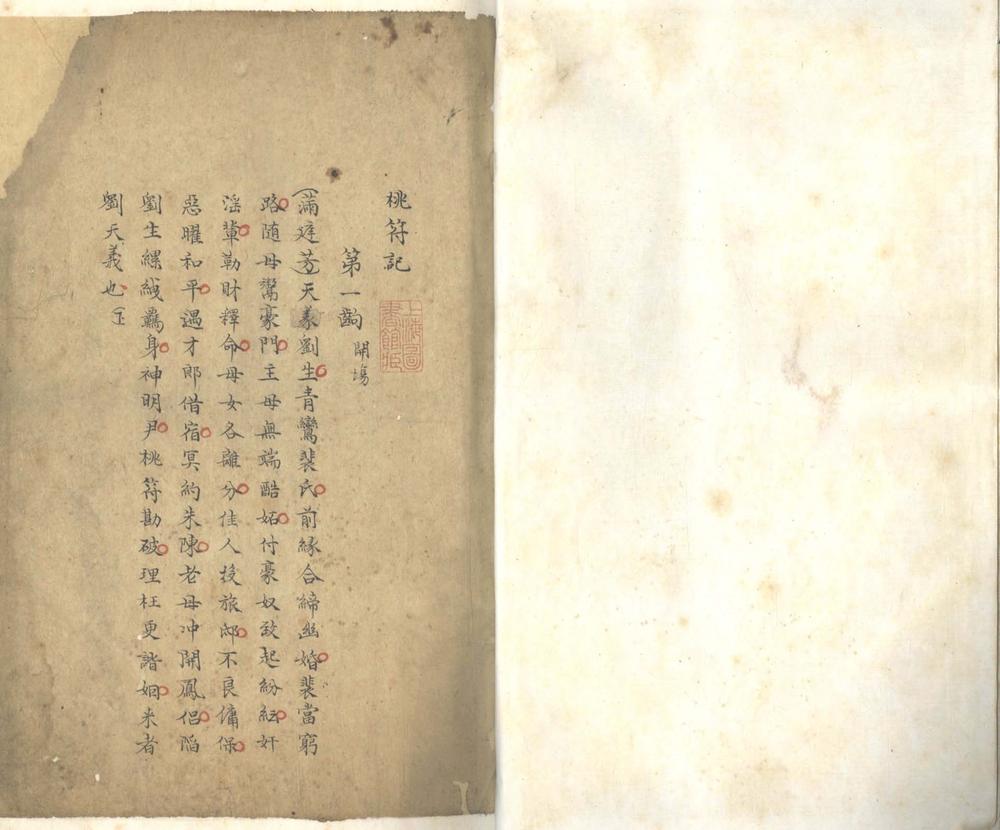 桃符記
第一齣 開場
(滿庭芳)天義劉生青鸞裴氏前緣合締幽婚裴當窮
路随母鬻豪門主母無端酷妬付豪奴致起紛紜奸
淫輩勒財釋命母女各離分佳人投旅邸不良傭保
惡曜和平遇才郎借宿冥約朱陳老母冲開鳳侣陷
劉生縲絏羈身神明尹桃符勘破理枉更諧姻来者
劉天義也(下
上海圖書館藏